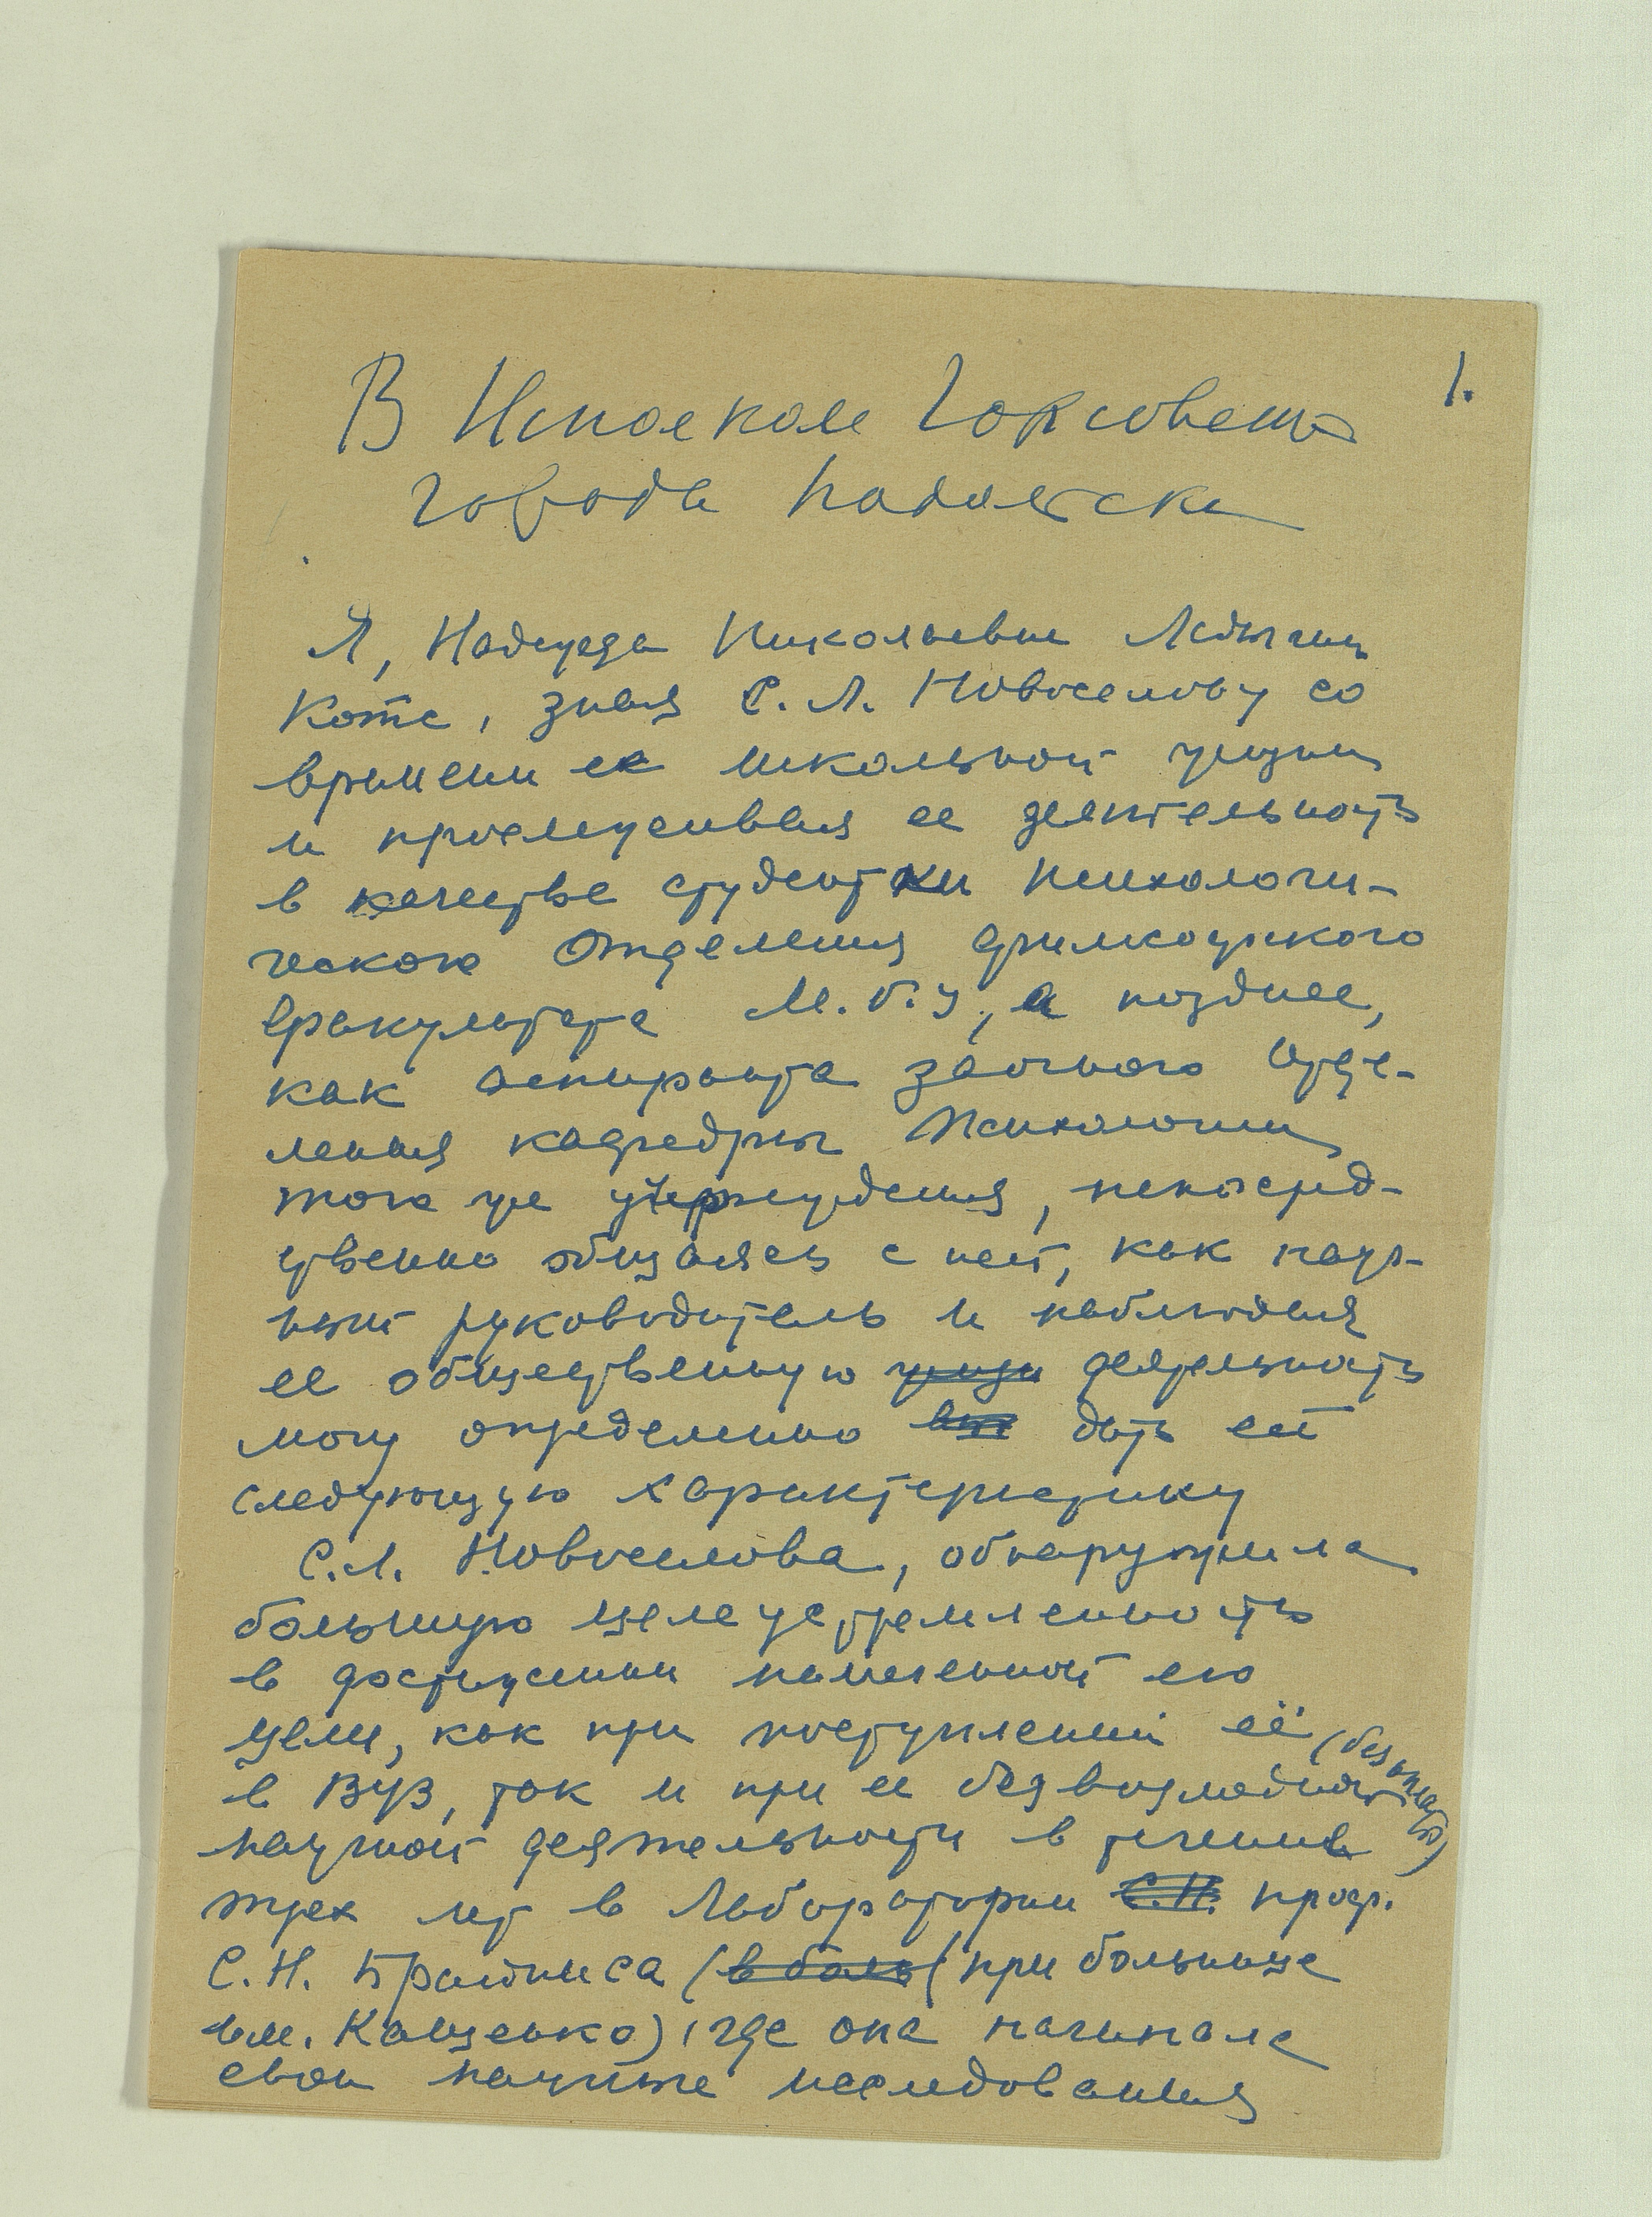 1.
В Исполком Горсовета
города Подольска
Я, Надежда Николаевна Ладыгина
Котс, зная С. Л. Новоселову со
времени ее школьной жизни
и прослеживая ее деятельность
в качестве студентки психологи-
ческого Отделения философского
факультета М.Г.У, а позднее,
как аспиранта заочного отде-
ления кафедры Психологии
того же учреждения, непосред-
ственно общаясь с ней, как науч-
ный руководитель и наблюдая
ее общественную жизн деятельность
могу определенно дать ей
следующую характеристику
С.Л. Новоселова, обнаружила
большую целеустремленность
в достижении намеченной ею
цели, как при поступлении её
в ВУЗ, так и при ее безвозмездной (без оплаты)
научной деятельности в течении
трех лет в Лаборатории С.Н. проф.
С.Н. Брайнеса (в боль (при больнице
им. Кащенко), где она начинала
свои научные исследования